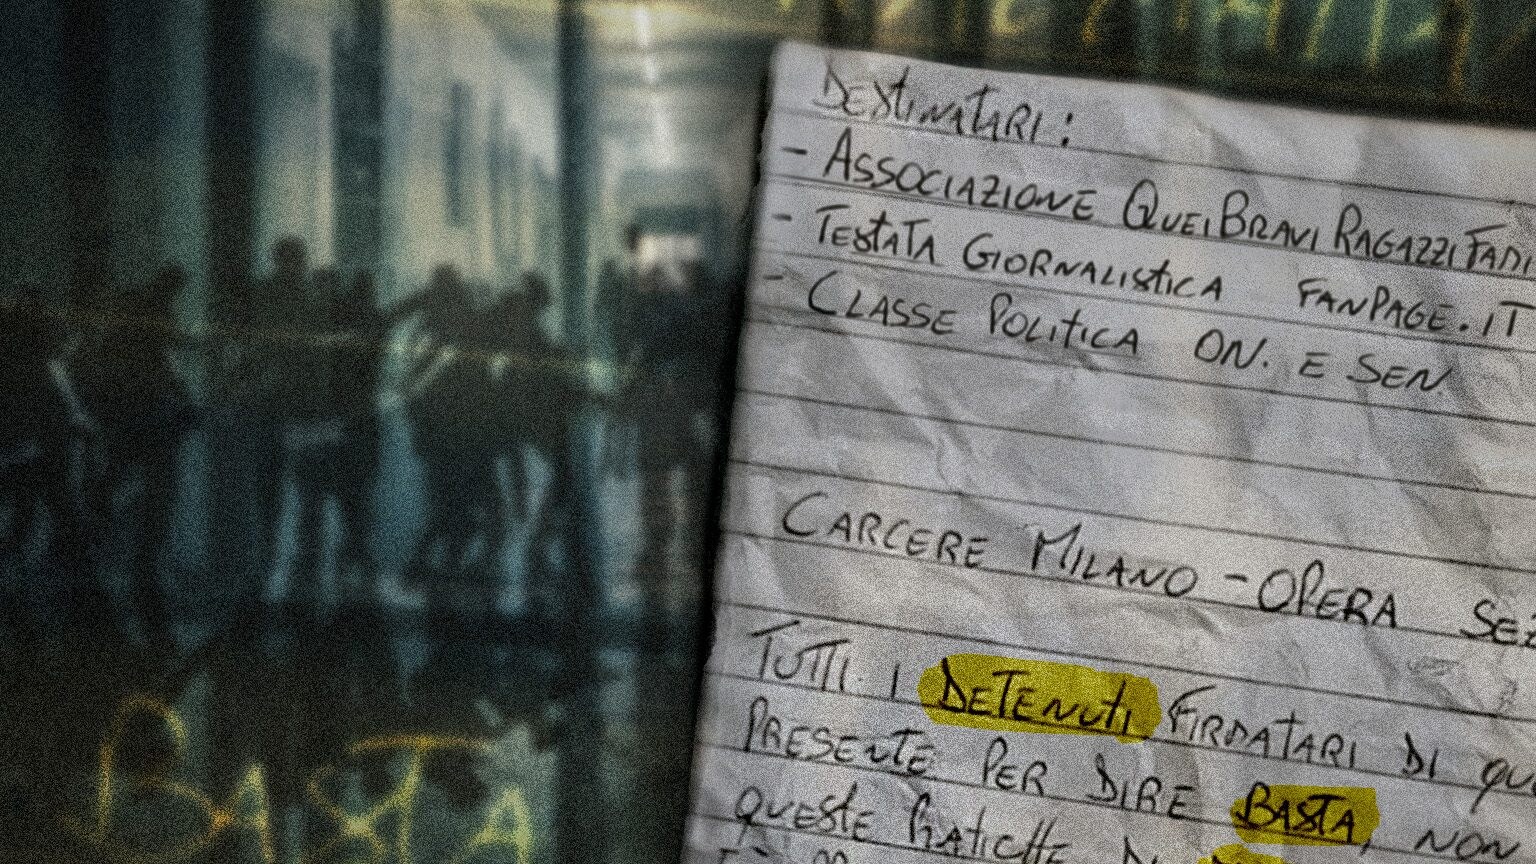 DESTINATARI:
- ASSOCIAZIONE QUEI BRAVI RAGAZZI FADI
- TESTATA GIORNALISTICA FANPAGE.IT
- CLASSE POLITICA ON. E SEN.
CARCERE MILANO - OPERA SEZ
TUTTI I DETENUTI FIRMATARI DI QU
PRESENTE PER DIRE BASTA, NON
QUESTE PRATICHE
BASTA